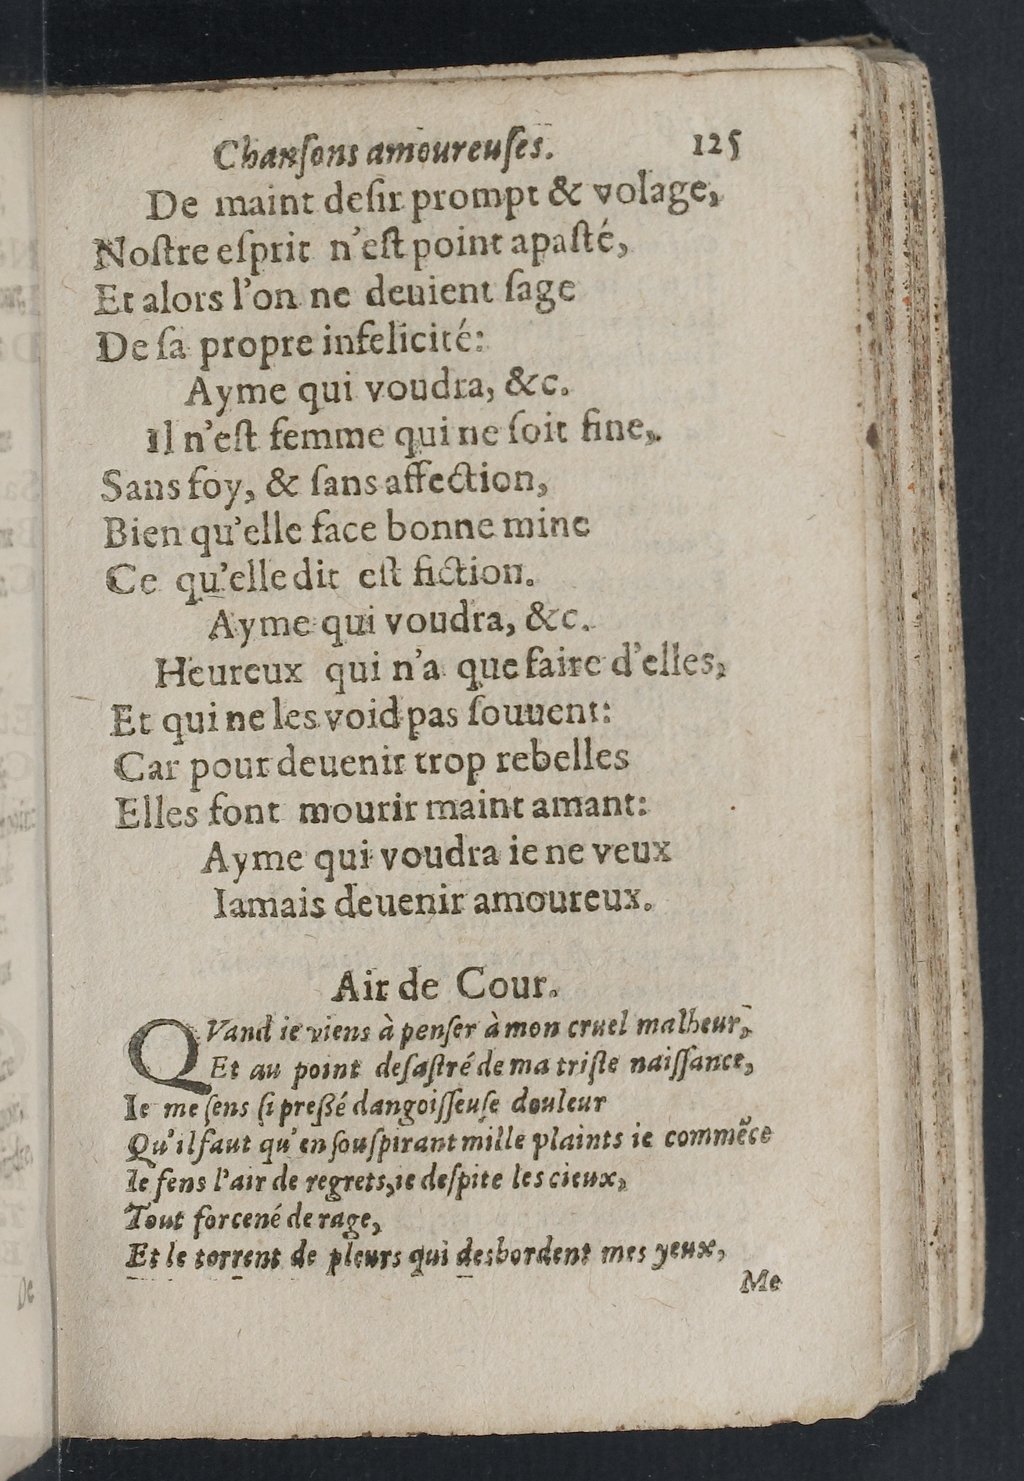 Chanſons amoureuſes. 125
De maint deſir prompt & volage,
Noſtre eſprit n'eſt point apaſté,
Et alors l'on ne deuient ſage
De ſa propre infelicité:
Ayme qui voudra, &c.
Il n'eſt femme qui ne ſoit fine,
Sans foy, & ſans affection,
Bien qu'elle face bonne mine
Ce qu'elle dit eſt fiction.
Ayme qui voudra, &c.
Heureux qui n'a que faire d'elles,
Et qui ne les void pas ſouuent:
Car pour deuenir trop rebelles
Elles font mourir maint amant:
Ayme qui voudra ie ne veux
Iamais deuenir amoureux.
Air de Cour.
QVand ie viens à penſer à mon cruel malheur,
Et au point deſaſtré de ma triſte naiſſance,
Ie me ſens ſi preßé dangoiſſeuſe douleur
Qu'il faut qu'en ſouſpirant mille plaints ie commẽce
Ie fens l'air de regrets, ie deſpite les cieux,
Tout forcené de rage,
Et le torrent de pleurs qui desbordent mes yeux,
Me
De